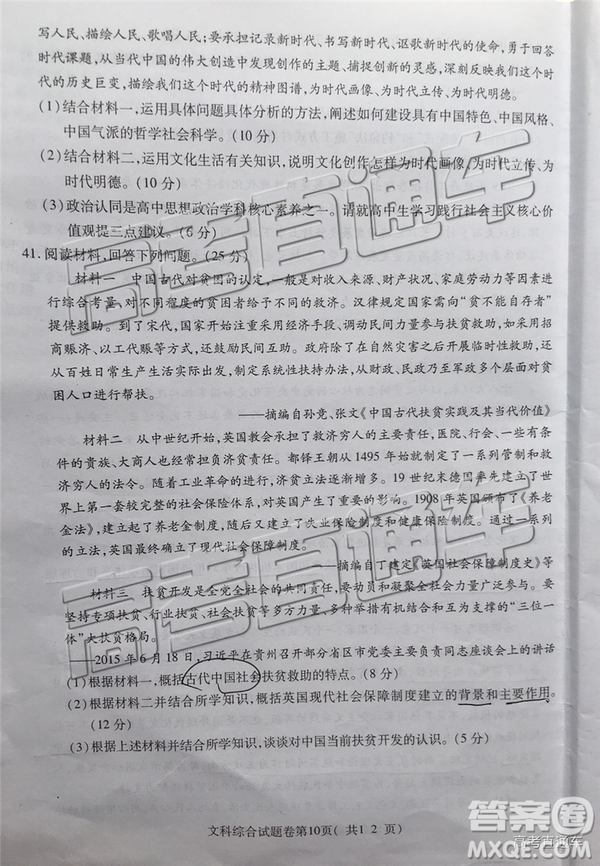 写人民、描绘人民、歌唱人民；要承担记录新时代、书写新时代、讴歌新时代的使命，勇于回答
时代课题，从当代中国的伟大创造中发现创作的主题、捕捉创新的灵感，深刻反映我们这个
时代的历史巨变，描绘我们这个时代的精神图谱，为时代画像、为时代立传、为时代明德。
(1)结合材料一，运用具体问题具体分析的方法，阐述如何建设具有中国特色、中国风格、
中国气派的哲学社会科学。(10分)
(2)结合材料二，运用文化生活有关知识，说明文化创作怎样为时代画像、为时代立传、为
时代明德。(10分)
(3)政治认同是高中思想政治学科核心素养之一。请就高中生学习践行社会主义核心价
值观提三点建议。(6分)
41.阅读材料，回答下列问题。(25分)
材料一　中国古代对贫困的认定，一般是对收入来源、财产状况、家庭劳动力等因素进
行综合考量，对不同程度的贫困者给予不同的救济。汉律规定国家需向“贫不能自存者”
提供救助。到了宋代，国家开始采用经济手段、调动民间力量参与扶贫救助，比如采用招
商赈济、以工代赈等方式，还鼓励民间互助。政府除了在自然灾害之后开展临时性救助，即
从百姓日常生产生活出发，制定系统性扶持办法，从财政、民政乃至军政多个层面对贫
困人口进行帮扶。
——摘编自孙竞、张文《中国古代扶贫实践及其当代价值》
材料二　从中世纪开始，英国教会承担了救济穷人的主要责任，医院、行会、有条
件的贵族、大商人也经常负担济贫责任。都铎王朝从1495年始大约制定了一系列的救
济穷人的法令。随着工业革命的进行，济贫立法逐步调整。19世纪末德国率先建立了世
界上第一套较完整的社会保险体系，对英国产生了重要的影响。1908年英国颁布了《养老
金法》，建立起了养老金制度，随后又建立了失业保险制度和健康保险制度。通过一系列
立法，英国最终确立了现代社会保障制度。
——摘编自丁建定《英国社会保障制度史》等
材料三　扶贫开发是全党全社会的共同责任，要动员和凝聚全社会力量广泛参与。要
坚持专项扶贫、行业扶贫、社会扶贫等多方力量、多种举措有机结合和互为支撑的“三位一
体”大扶贫格局。
——2015年6月18日，习近平在贵州召开部分省区市党委主要负责同志座谈会上的讲话
(1)根据材料一，概括古代中国社会扶贫救助的特点。(8分)
(2)根据材料二并结合所学知识，概括英国现代社会保障制度建立的背景和主要作用。
(12分)
(3)根据上述材料并结合所学知识，谈谈对中国当前扶贫开发的认识。(5分)
文科综合试题卷第10页(共12页)
高考直通车
高考直通车
高考直通车
答案圈
MXQE.COM
高考直通车